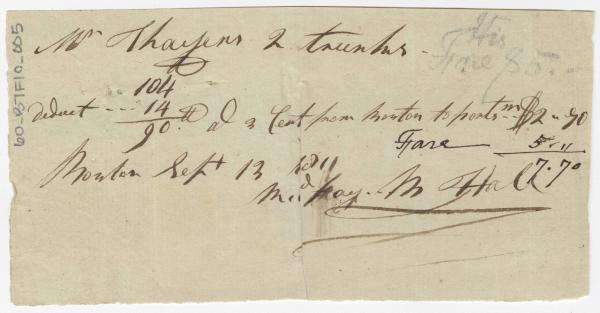 60-BTF10-005
Mr Thayers 2 trunks -
His
Fare $5.-
lb
104
deduct --- 14
90 lb @ 3 Cent from Boston to Portsm $2 " 70
Fare 5 "
7.70
Boston Sept 13 1811
Hall